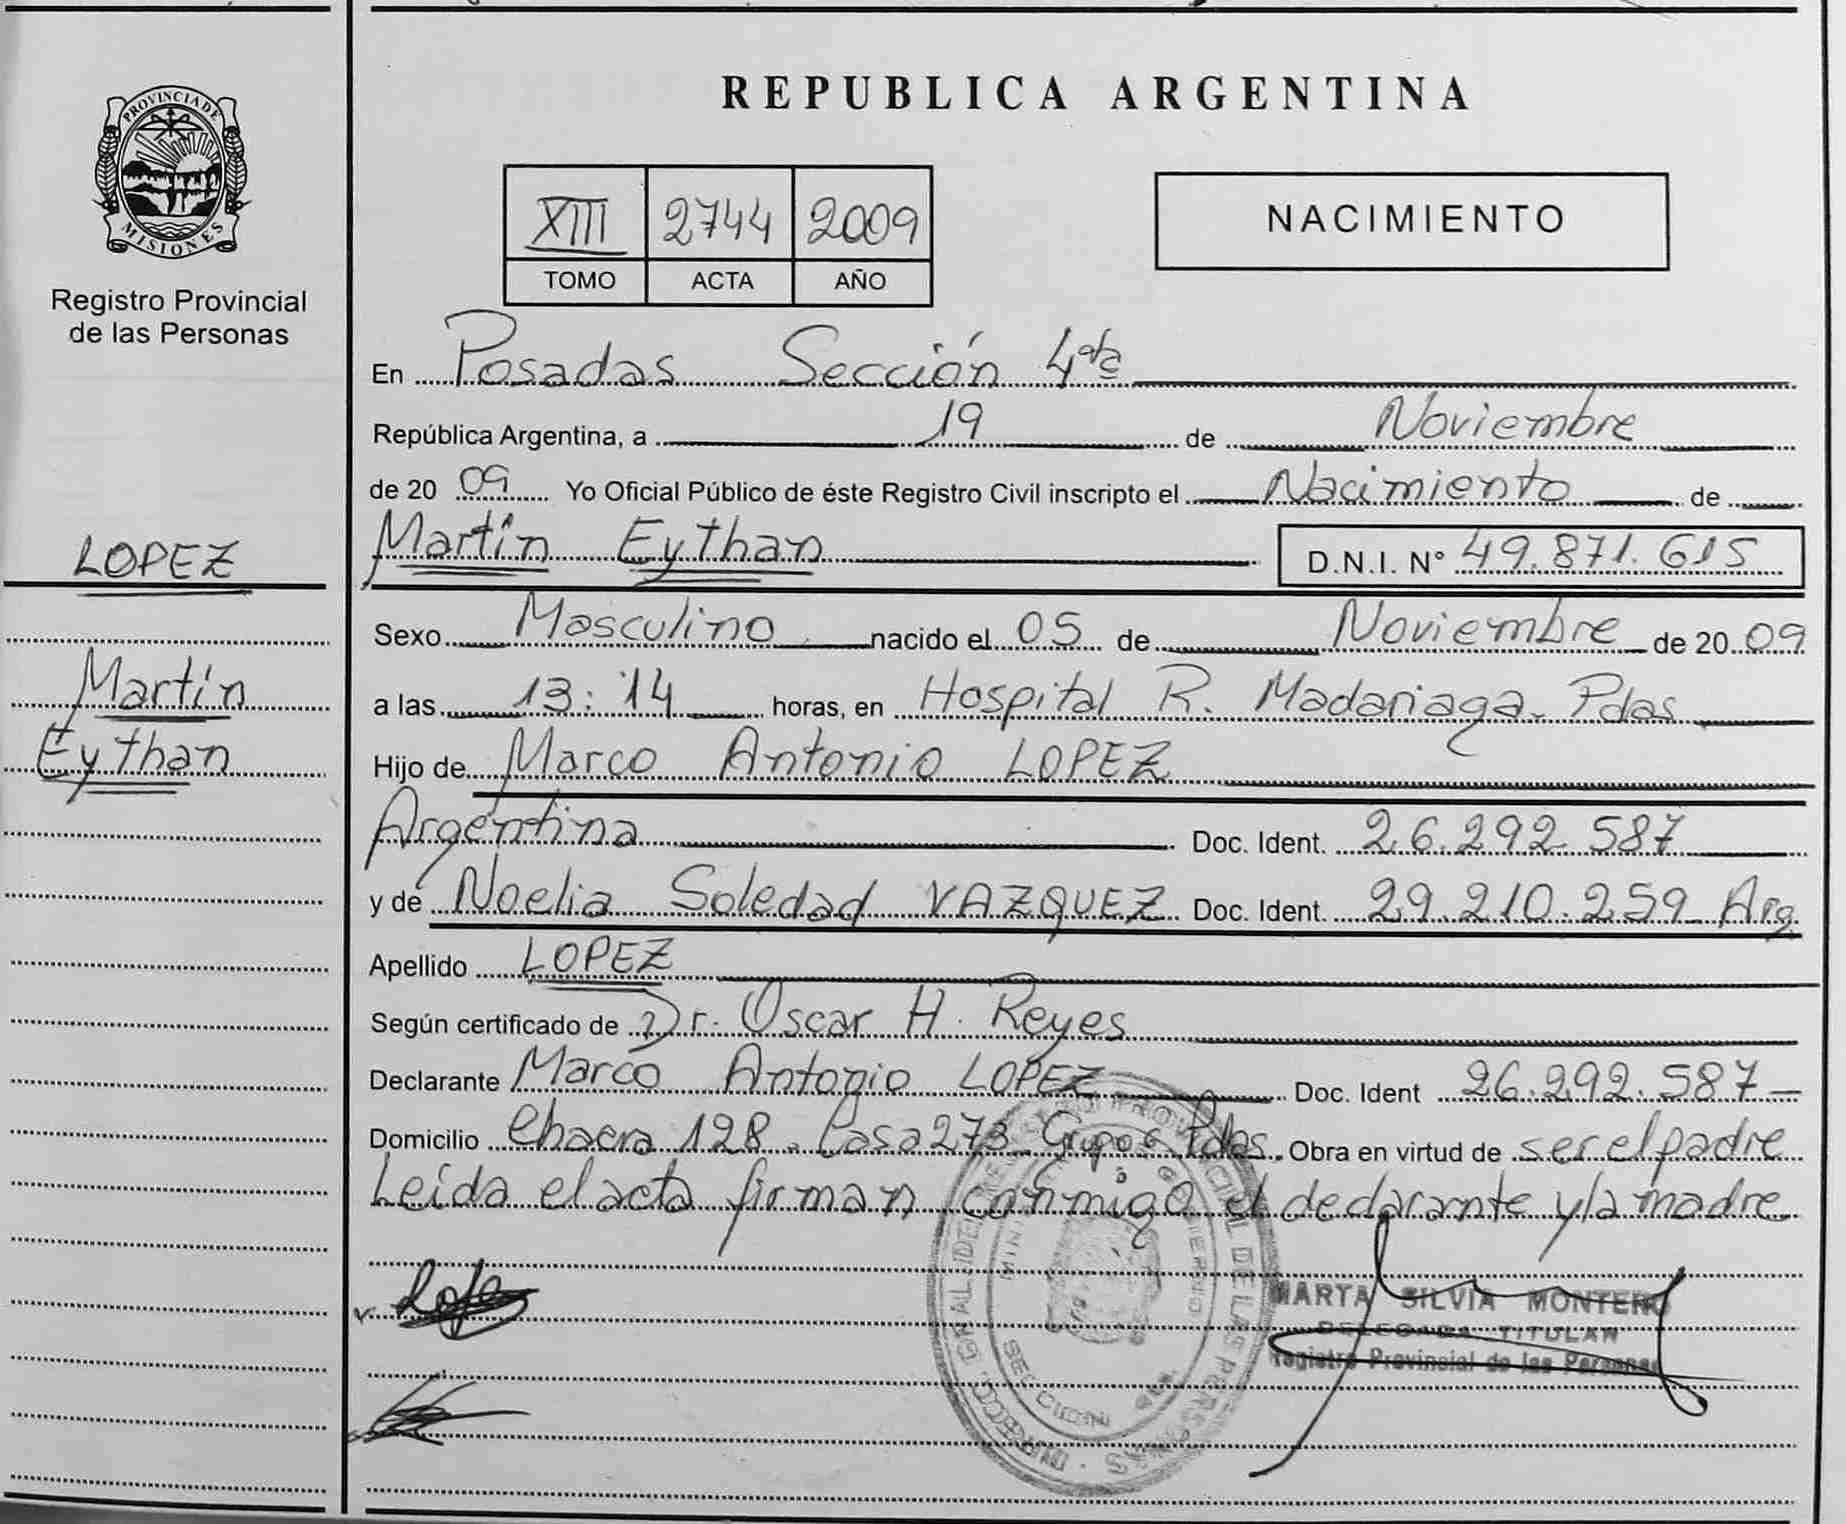 PROVINCIA DE
MISIONES
Registro Provincial
de las Personas
LOPEZ
Martín
Eythan
REPUBLICA ARGENTINA
XIII 2744 2009
TOMO ACTA AÑO
NACIMIENTO
En Posadas Sección 4ta
República Argentina, a 19 de Noviembre
de 20 09 Yo Oficial Público de éste Registro Civil inscripto el Nacimiento de
Martín Eythan D.N.I. N° 49.871.615
Sexo Masculino nacido el 05 de Noviembre de 20 09
a las 13:14 horas, en Hospital R. Madariaga. Pdas
Hijo de Marco Antonio LOPEZ
Argentina Doc. Ident. 26.292.587
y de Noelia Soledad VAZQUEZ Doc. Ident. 29.210.259 Arg.
Apellido LOPEZ
Según certificado de Dr. Oscar H. Reyes
Declarante Marco Antonio LOPEZ Doc. Ident 26.292.587
Domicilio Chacra 128. Casa 273 Grupo 6 Pdas. Obra en virtud de ser el padre
Leída el acta firman conmigo el declarante y la madre
MARTA SILVIA MONTERO
DELEGADA TITULAR
Registro Provincial de las Personas